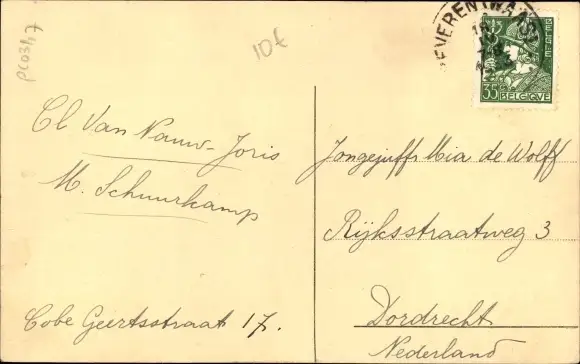 PC03/47
10€
BEVEREN (WAAS)
BELGIË
35 BELGIQUE
Cl Van Nauw-Joris
M. Schuurkamp
Cobe Geertsstraat 17.
Jongejuffr Mia de Wolff
Rijksstraatweg 3
Dordrecht
Nederland